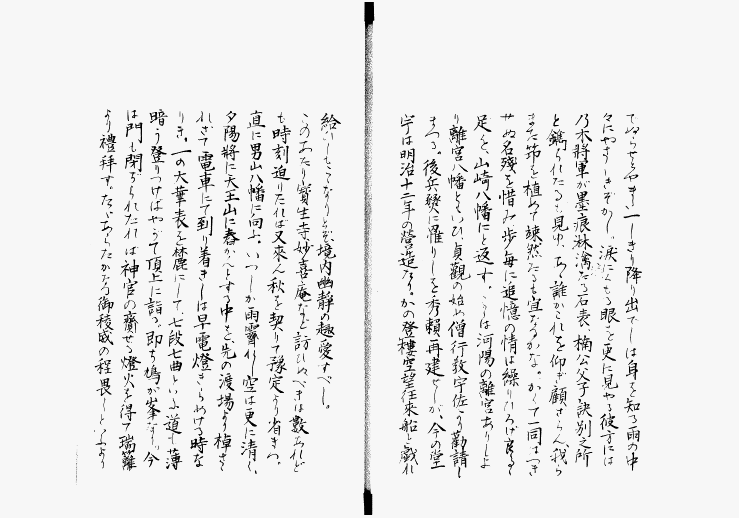 々にやさしきぞかし、涙にくもる眼を更に見やる彼方には
乃木將軍が墨痕淋漓たる石表、楠公父子訣別之所
と鐫られたるを見ゆ、あゝ誰かこれを仰ぎ顧ざらん、我ら
また節を植ゑて竦然たるも宜なるかな。かくて一同はつき
せぬ名殘を惜み歩毎に追憶の情は繰りひろげ
足を、山崎八幡にと返す。こゝは河陽の離宮ありしよ
り離宮八幡ともいひ、貞觀の始め僧行教宇佐より勸請し
まつる。後兵燹に罹りしを秀賴再建せしが、今の堂
宇は明治十二年の營造なり。かの登樓空望往來船と戲れ
給ひしもこゝなりとぞ境内幽靜の趣愛すべし。
このあたり寶生寺妙喜庵など訪ひぬべきは數あれど
も時刻迫りたれば又來ん秋を契りて豫定より省きつ。
直に男山八幡に向ふ。いつしか雨霽れし空は更に清く、
夕陽將に天王山に舂かんとする中を、先の渡場より棹さ
れさて電車にて到り着きしは早電燈きらめける時な
りき。一の大華表を麓にして、七段七曲といふ道を薄
暗う登りつけばやがて頂上に詣る。即ち鳩が峯なり。今
は門も閉ぢられたれば神官の齎せる燈火を得て瑞籬
より禮拜す。たゞあらたかなる御稜威の程畏しといふより